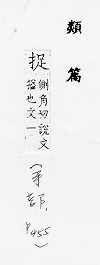 類篇
捉
側角切說文
搤也文一
(手部,
P455)